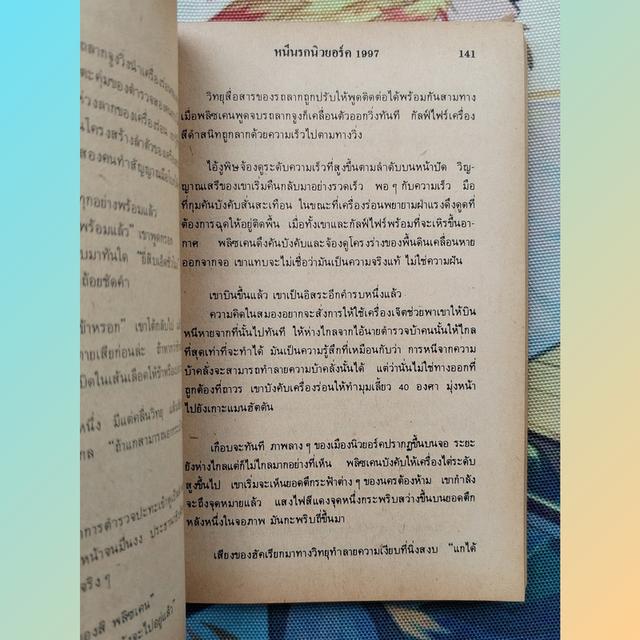 ลากจูงวิ่งนำเครื่องร่อน
ทุกอย่างพร้อมแล้ว
พร้อมแล้ว" เขาพูดกรอก
ถ้อยชัดคำ
"ถ้าแกสามารถ
หนีนรกนิวยอร์ค 1997 141
วิทยุสื่อสารของรถลากถูกปรับให้พูดติดต่อได้พร้อมกันสามทาง
เมื่อพลิซเคนพูดจบรถลากจูงก็เคลื่อนตัวออกวิ่งทันที กัลฟ์ไฟร์เครื่อง
สีดำสนิทถูกลากด้วยความเร็วไปตามทางวิ่ง
ไอ้งูพิษจ้องดูระดับความเร็วที่สูงขึ้นตามลำดับบนหน้าปัด วิญ-
ญาณเสรีของเขาเริ่มคืนกลับมาอย่างรวดเร็ว พอๆ กับความเร็ว มือ
ที่กุมคันบังคับสั่นสะเทือน ในขณะที่เครื่องร่อนพยายามฝ่าแรงดึงดูดที่
ต้องการฉุดให้อยู่ติดพื้น เมื่อทั้งเขาและกัลฟ์ไฟร์พร้อมที่จะเหิรขึ้นอา-
กาศ พลิซเคนดึงคันบังคับและจ้องดูโครงร่างของพื้นดินเคลื่อนหาย
ออกจากจอ เขาแทบจะไม่เชื่อว่ามันเป็นความจริงแท้ ไม่ใช่ความฝัน
เขาบินขึ้นแล้ว เขาเป็นอิสระอีกคำรบหนึ่งแล้ว
ความคิดในสมองอยากจะสั่งการให้ใช้เครื่องเจ็ตช่วยพาเขาให้บิน
หนีหายจากที่นั่นไปทันที ให้ห่างไกลจากไอ้นายตำรวจบ้าคนนั้นให้ไกล
ที่สุดเท่าที่จะทำได้ มันเป็นความรู้สึกที่เหมือนกับว่า การหนีจากความ
บ้าคลั่งจะสามารถทำลายความบ้าคลั่งนั้นได้ แต่ว่านั่นไม่ใช่ทางออกที่
ถูกต้องที่ถาวร เขาบังคับเครื่องร่อนให้ทำมุมเลี้ยว 40 องศา มุ่งหน้า
ไปยังเกาะแมนฮัตตัน
เกือบจะทันที ภาพลางๆ ของเมืองนิวยอร์คปรากฏขึ้นบนจอ ระยะ
ยังห่างไกลแต่ก็ไม่ไกลมากอย่างที่เห็น พลิซเคนบังคับให้เครื่องไต่ระดับ
สูงขึ้นไป เขาเริ่มจะเห็นยอดตึกระฟ้าต่างๆ ของนครต้องห้าม เขากำลัง
จะถึงจุดหมายแล้ว แสงไฟสีแดงจุดหนึ่งกระพริบสว่างขึ้นบนยอดตึก
หลังหนึ่งในจอภาพ มันกะพริบถี่ขึ้นมา
เสียงของฮัคเรียกมาทางวิทยุทำลายความเงียบที่นิ่งสงบ "แกได้